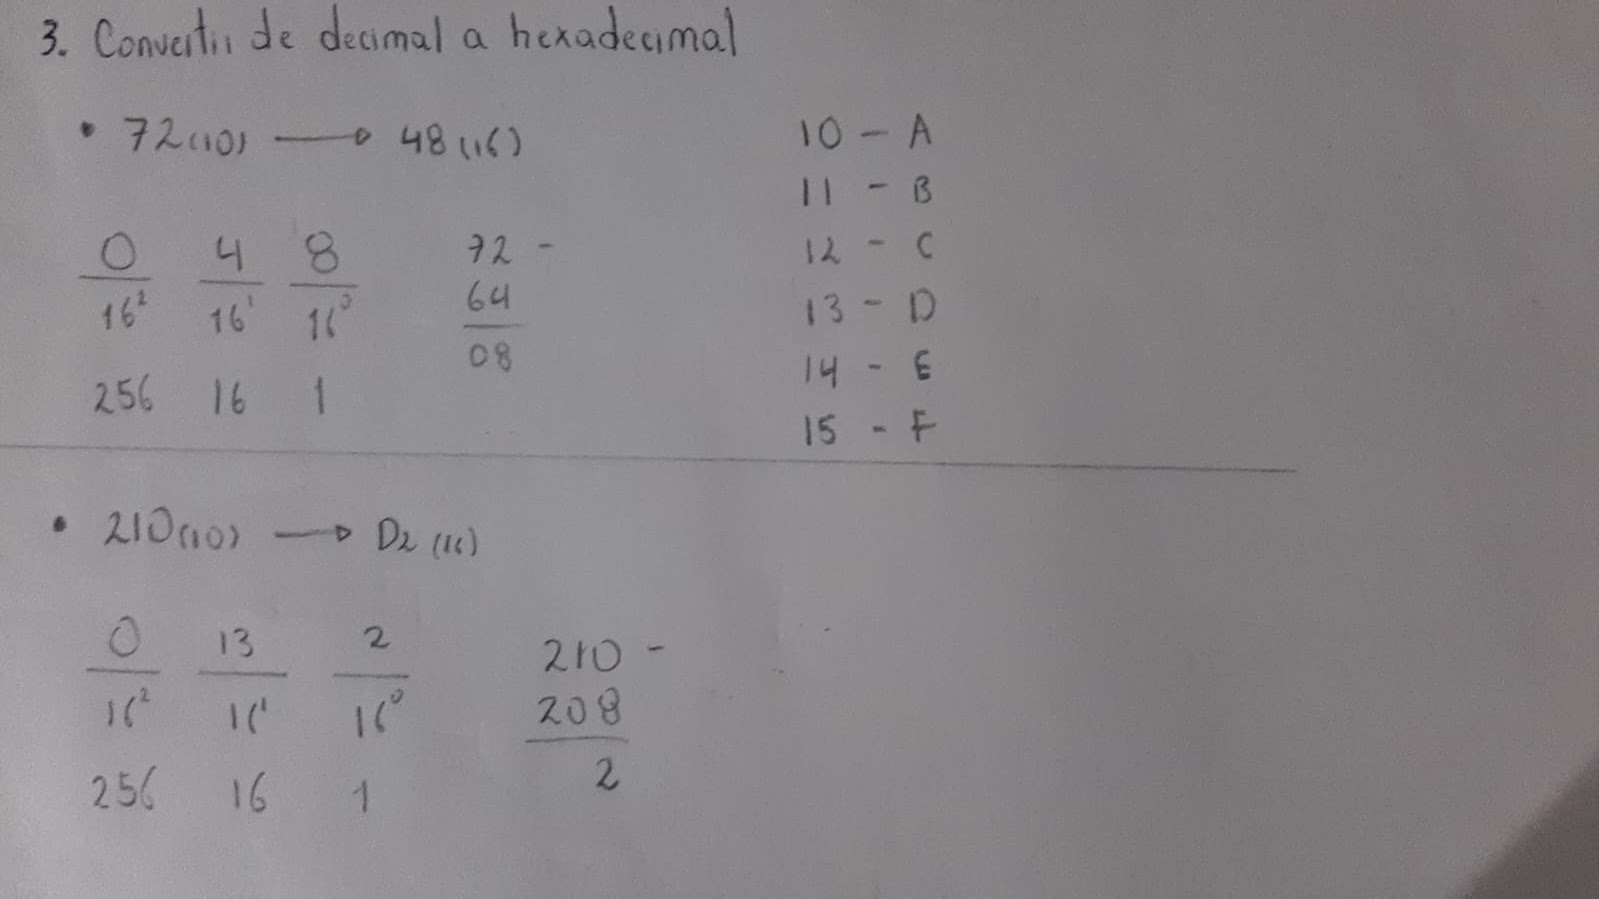 3. Convertir de decimal a hexadecimal
• 72(10) → 48(16)
0 4 8
16² 16¹ 16⁰
256 16 1
72 -
64
08
10 - A
11 - B
12 - C
13 - D
14 - E
15 - F
• 210(10) → D2(16)
0 13 2
16² 16¹ 16⁰
256 16 1
210 -
208
2